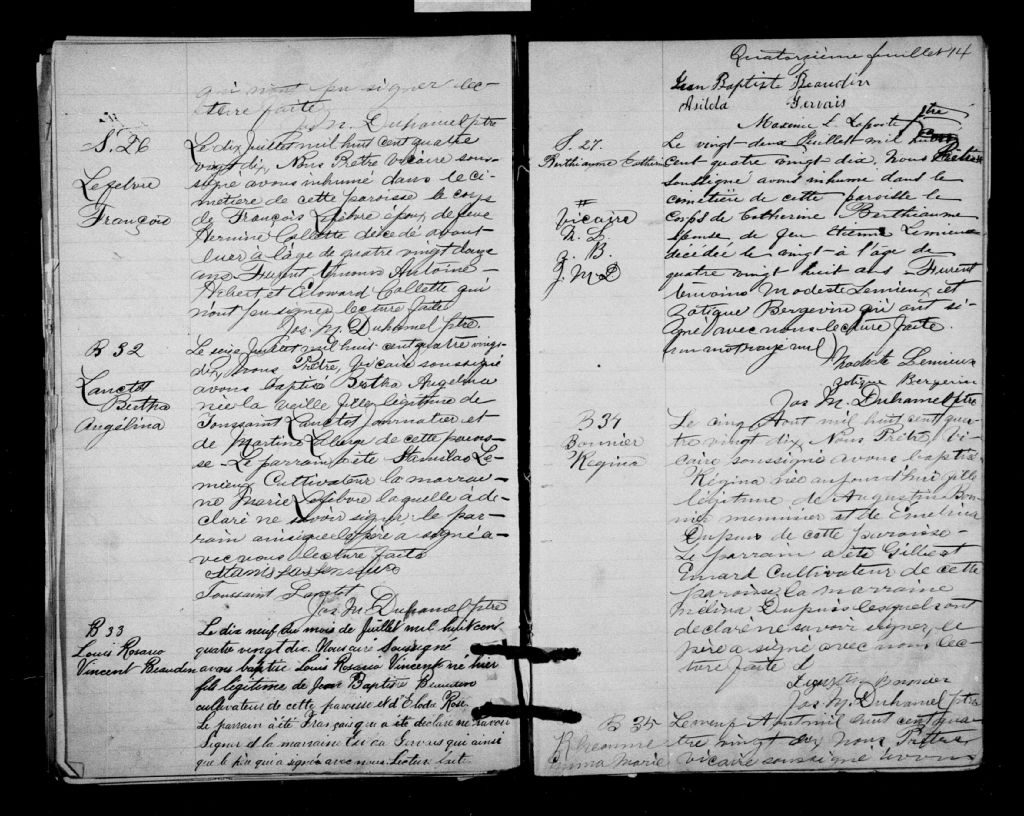 qui n'ont pu signer lec-
ture faite
Jos M. Duhamel ptre
S. 26
Lefebvre
François
Le dix Juillet mil huit cent quatre
vingt dix, Nous Prêtre vicaire sous-
signé avons inhumé dans le ci-
metière de cette paroisse le corps
de François Lefebvre époux de feue
Collette décédé avant
hier à l'âge de quatre vingt
ans Furent témoins Antoine
Hébert et Edouard Collette qui
n'ont pu signer lecture faite
Jos. M. Duhamel ptre.
B 32
Lanctot
Bertha
Angélina
Le seize Juillet mil huit cent quatre vingt
dix, nous Prêtre, Vicaire soussigné
avons baptisé Bertha Angelina
née la veille fille légitime de
Toussaint Lanctot journalier et
de Martine Laberge de cette parois-
se - Le parrain a été Stanislas Le-
mieux Cultivateur la marrai-
ne Marie Lefebvre laquelle a dé-
claré ne savoir signer le par-
rain ainsi que le père a signé a-
vec nous lecture faite
Stanislas Lemieux
Toussaint Lanctot
Jos. M. Duhamel ptre
B 33
Louis Rosario
Vincent Beaudin
Le dix neuf du mois de Juillet mil huit cent
quatre vingt dix. Nous curé Soussigné
avons baptisé Louis Rosario Vincent né hier
fils légitime de Jean Baptiste Beaudin
cultivateur de cette paroisse et d'Elodie Rose.
Le parrain a été François qui a été déclaré ne savoir
signer et la marraine Gervais qui ainsi
que le père qui a signé avec nous. Lecture faite
Quatorzième feuillet 14
Jean Baptiste Beaudin
Asilda Gervais
Maxime L. Laporte ptre
S. 27.
Berthiaume Catherine
#
Vicaire
J. M. D
Le vingt deux Juillet mil huit
cent quatre vingt dix. Nous Prêtre
soussigné avons inhumé dans le
cimetière de cette paroisse le
corps de Catherine Berthiaume
épouse de feu Etienne Lemieux
décédée le vingt à l'âge de
quatre vingt huit ans - Furent
témoins Modeste Lemieux et
Zotique Bergevin qui ont si-
gné avec nous lecture faite.
un mot rayé nul)
Modeste Lemieux
Zotique Bergevin
Jos M. Duhamel ptre
B 34
Bonnier
Régina
Le cinq Aout mil huit cent qua-
tre vingt dix, Nous Prêtre, Vi-
caire soussigné avons baptisé
Régina née aujourd'hui fille
légitime de Augustin Bon-
nier meunier et de Emelina
Dupuis de cette paroisse-
Le parrain a été Gilbert
Emard Cultivateur de cette
paroisse la marraine
Mélina Dupuis lesquels ont
déclaré ne savoir signer, le
père a signé avec nous lec-
ture faite
Bonnier
Jos M. Duhamel ptre
B 35
Emma Marie
Le neuf Aout mil huit cent qua-
tre vingt dix nous Prêtre
vicaire soussigné avons